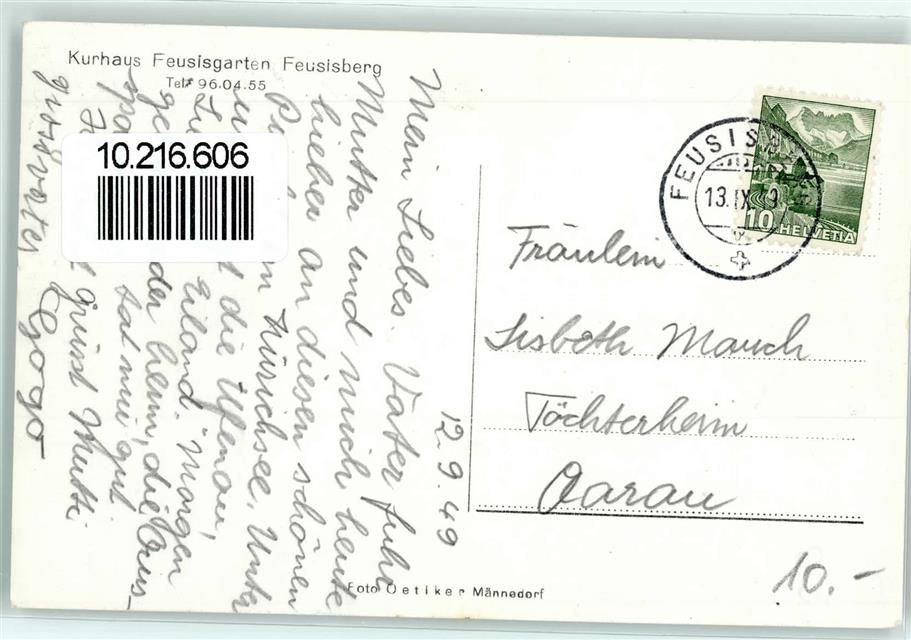 Kurhaus Feusisgarten Feusisberg
Tel. 96.04.55
10.216.606
12.9.49
Mein Liebes. Vater fuhr
Mutter und mich heute
hieher an diesen schönen
Zürichsee. Unter
die Ufenau,
Eiland. Morgen
der heim, die Aus-
tat mir gut
grüsst Mutti
Grossvater Gogo
FEUSISB
13.IX.49
10 HELVETIA
Fräulein
Lisbeth Mauch
Töchterheim
Aarau
10.-
Foto Oetiker Männedorf